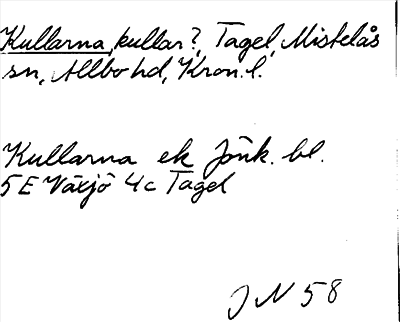 Kullarna, kullar?, Tagel, Mistelås
sn, Allbo hd, Kron. l.
Kullarna ek Jönk. bl.
5E Växjö 4c Tagel
JN 58